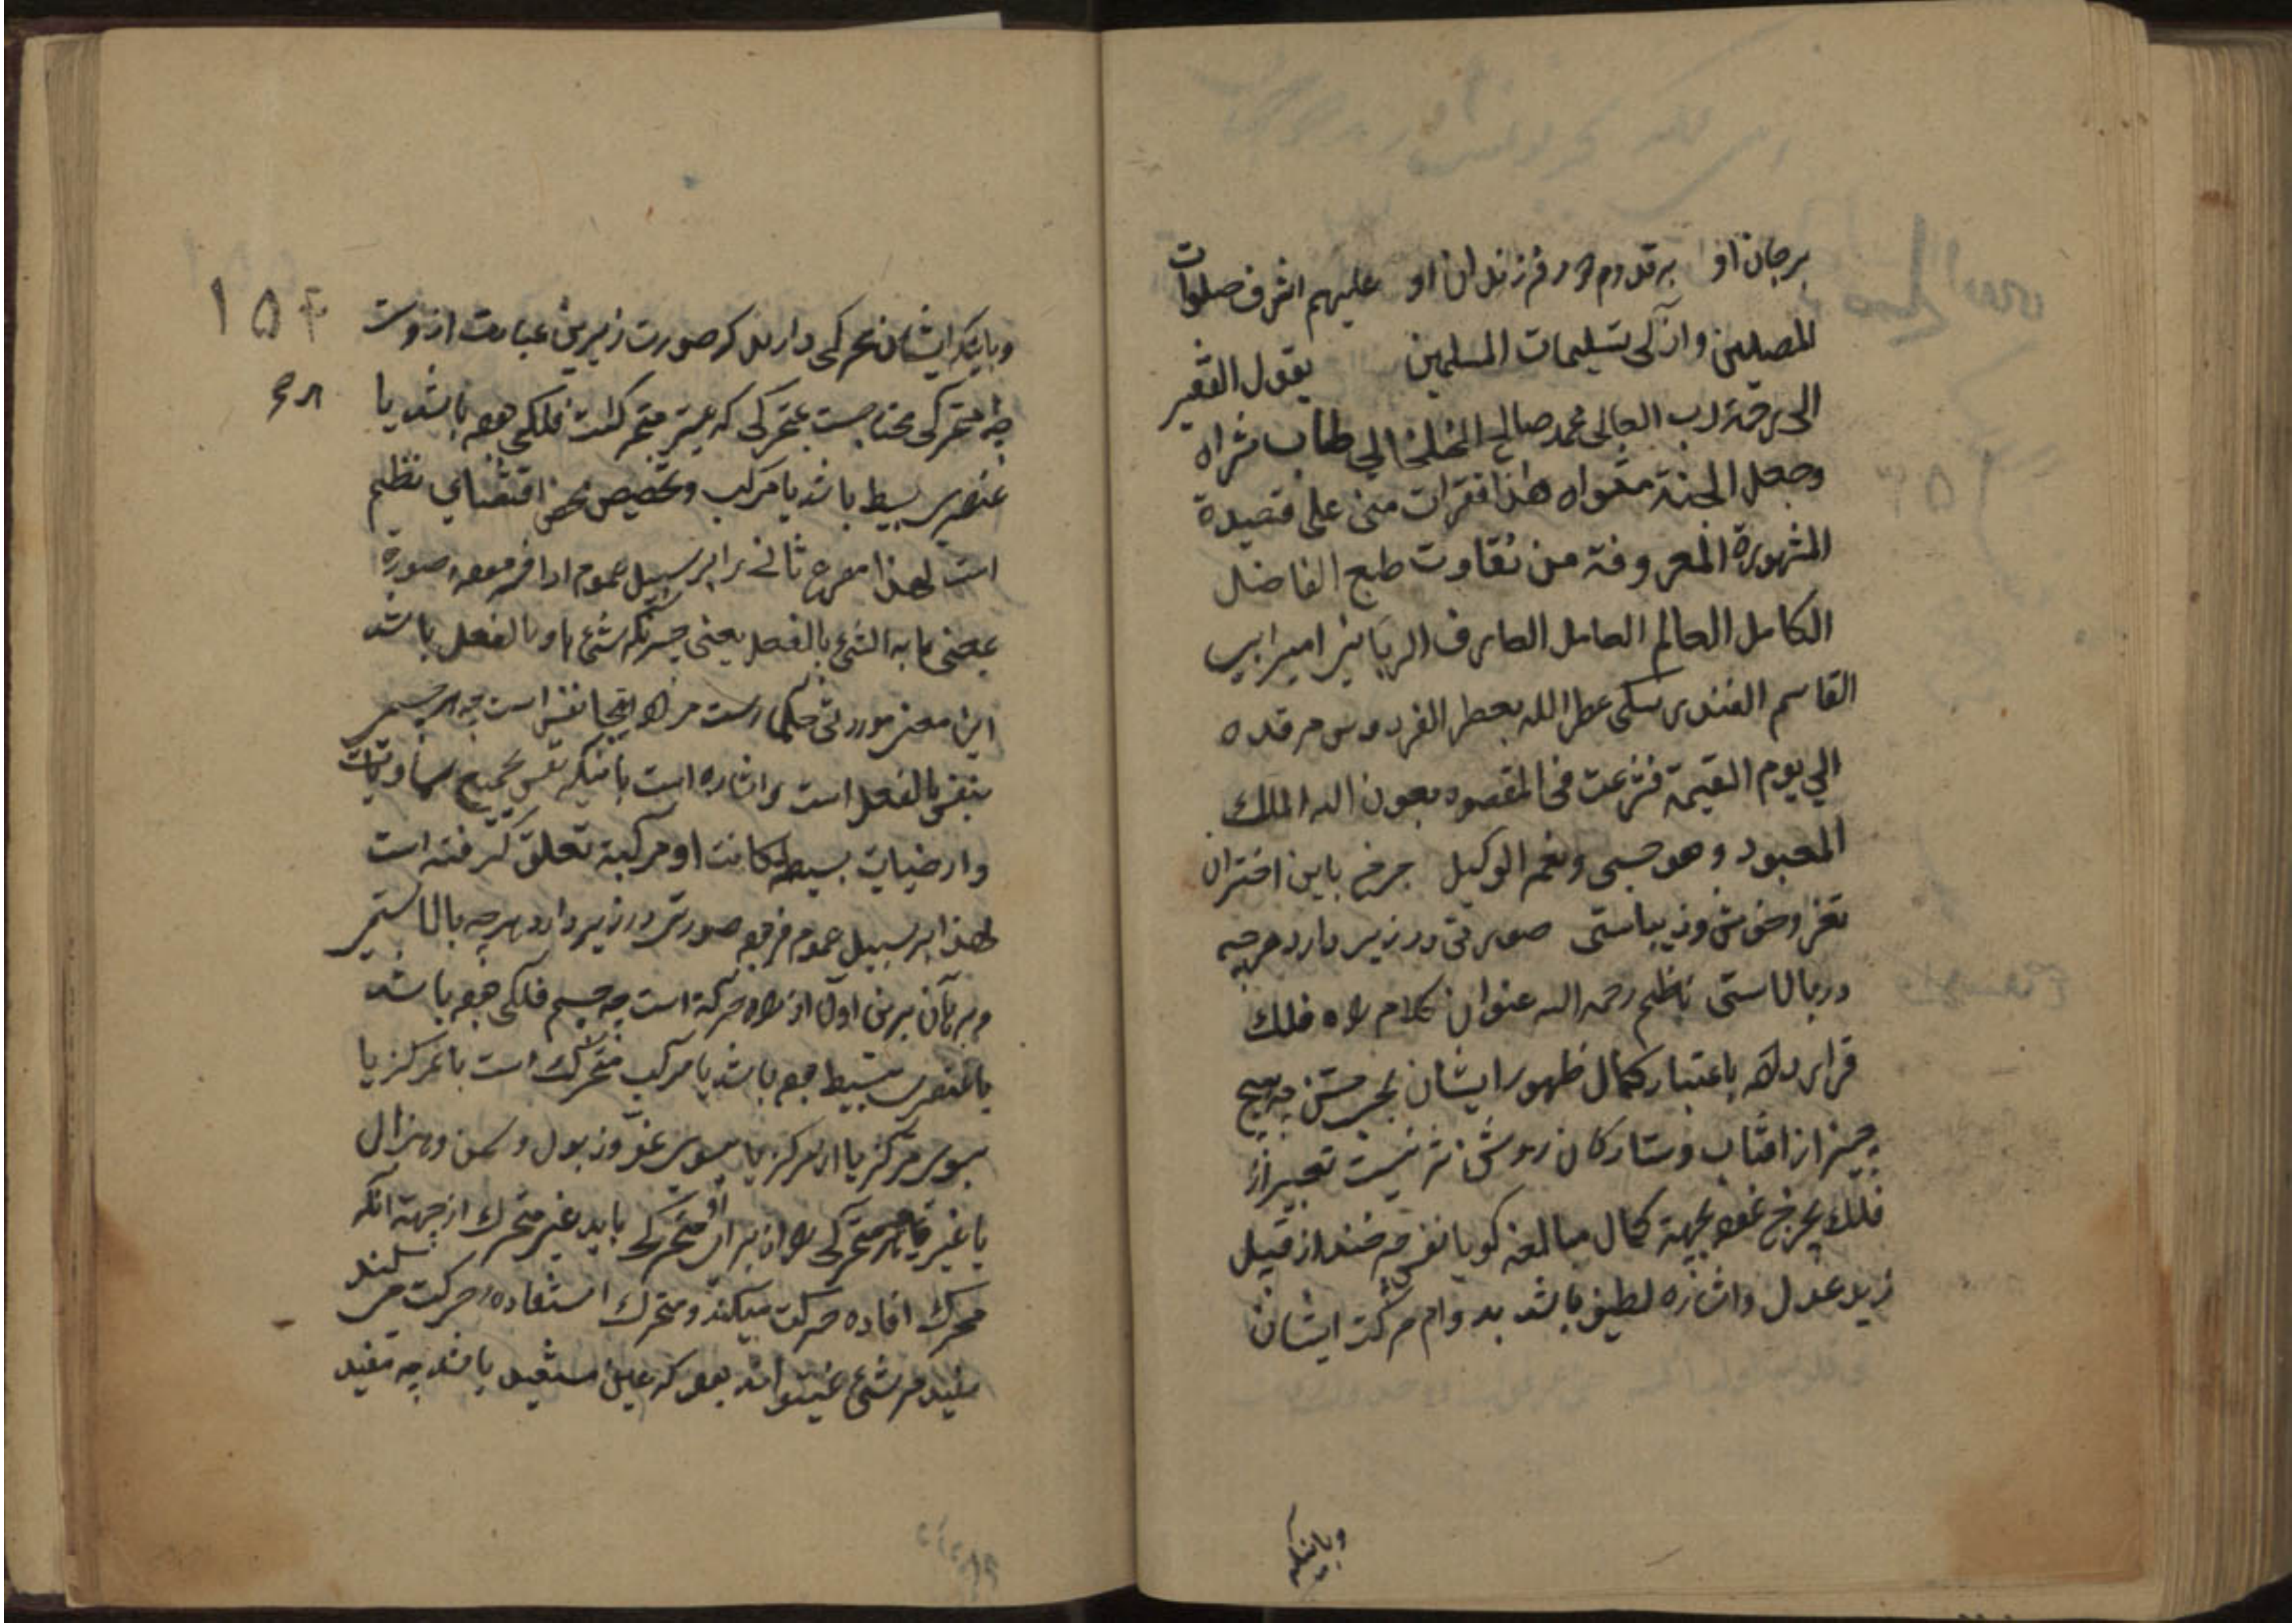 برجان او بر قدوم و فرزندان او عليهم اشرف صلوات
المصلين وازكى تسليمات المسلمين يقول الفقير
الى رحمة رب العالى محمد صالح الخلخالي طاب ثراه
وجعل الجنة مثواه هذا فقرات منى على قصيدة
المشهورة المعروفة من نقاوت طبع الفاضل
الكامل العالم العامل العارف الربانى امير ابى
القاسم الفندرسكى عطر الله بعطر الفردوس مرقده
الي يوم القيمة فشرعت فى المقصود بعون الله الملك
المعبود وهو حسبى ونعم الوكيل چرخ با اين اختران
نغز و خوش و زيباستى صورتى در زير دارد هرچه
در بالاستى ناظم رحمه الله عنوان كلام را فلك
قرار داده باعتبار كمال ظهور ايشان بحس چه هيچ
چيز از افتاب و ستاركان روشن تر نيست تعبير از
فلك بچرخ نموده بجهة كمال مبالغه كويا نفس چرخند از قبيل
زيد عدل و اشاره لطيف باشد بدوام حركت ايشان
وباينكه
۱۵۴
وباينكه ايشان محركى دارند كه صورت زيرين عبارت ازوست
چه متحركى محتاجست بمحركى كه غير متحركست فلكى بوده باشد يا
عنصرى بسيط باشد يا مركب و تخصيص محض اقتضاى نظم
است لهذا مصرع ثانى را بر سبيل عموم ادا فرموده صورة
بمعنى ما به الشئ بالفعل يعنى چيزيكه شئ باو بالفعل باشد
اين معنى مورد حكما است مراد اينجا نفس است چه هر جسم
بنفس بالفعل است و اشاره است باينكه نفس بجميع سماويات
وارضيات بسيطة كانت او مركبة تعلق كرفته است
لهذا بر سبيل عموم فرموده صورتى در زير دارد هرچه بالاستى
و برهان برين اولا از راه حركة است چه جسم فلكى بوده باشد
يا عنصرى بسيط بوده باشد يا مركب متحرك است يا بمركز يا
بسوى مركز يا از مركز يا بسوى نمو و ذبول و سمن و هزال
يا غير و هر متحركى را از براى او محركى بايد غير متحرك از جهة آنكه
محرك افاده حركت ميكند و متحرك استفاده حركت ميكند
مفيد هر شئ نميتواند بود كه عين مستفيد باشد چه مفيد